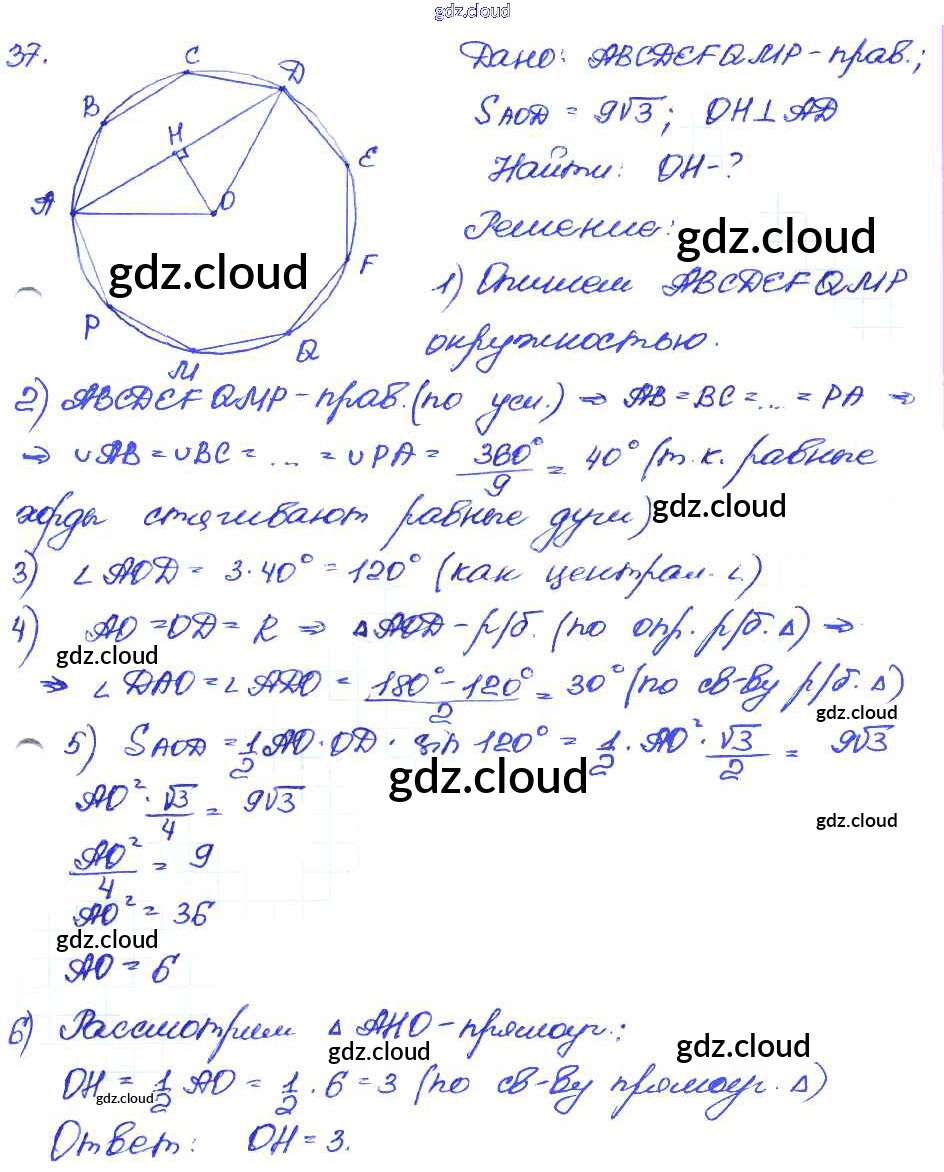 gdz.cloud
37.
Дано: ABCDEFQMP - прав.;
S AOD = 9√3; OH ⊥ AD
Найти: OH - ?
Решение:
gdz.cloud
1) Опишем ABCDEFQMP
окружностью.
C
D
B
H
E
A
O
gdz.cloud
F
P
M
Q
2) ABCDEFQMP - прав. (по усл.) ⇒ AB = BC = ... = PA ⇒
⇒ ∪AB = ∪BC = ... = ∪PA = 360°/9 = 40° (т.к. равные
хорды стягивают равные дуги)
gdz.cloud
3) ∠AOD = 3·40° = 120° (как централ. ∠)
4) AO = OD = R ⇒ △AOD - р/б. (по опр. р/б. △) ⇒
gdz.cloud
⇒ ∠DAO = ∠ADO = (180° - 120°)/2 = 30° (по св-ву р/б. △)
gdz.cloud
5) S AOD = 1/2 AO · OD · sin 120° = 1/2 · AO² · √3/2 = 9√3
gdz.cloud
AO² · √3/4 = 9√3
gdz.cloud
AO²/4 = 9
AO² = 36
gdz.cloud
AO = 6
6) Рассмотрим △AHO - прямоуг.:
gdz.cloud
gdz.cloud
OH = 1/2 AO = 1/2 · 6 = 3 (по св-ву прямоуг. △)
gdz.cloud
Ответ: OH = 3.